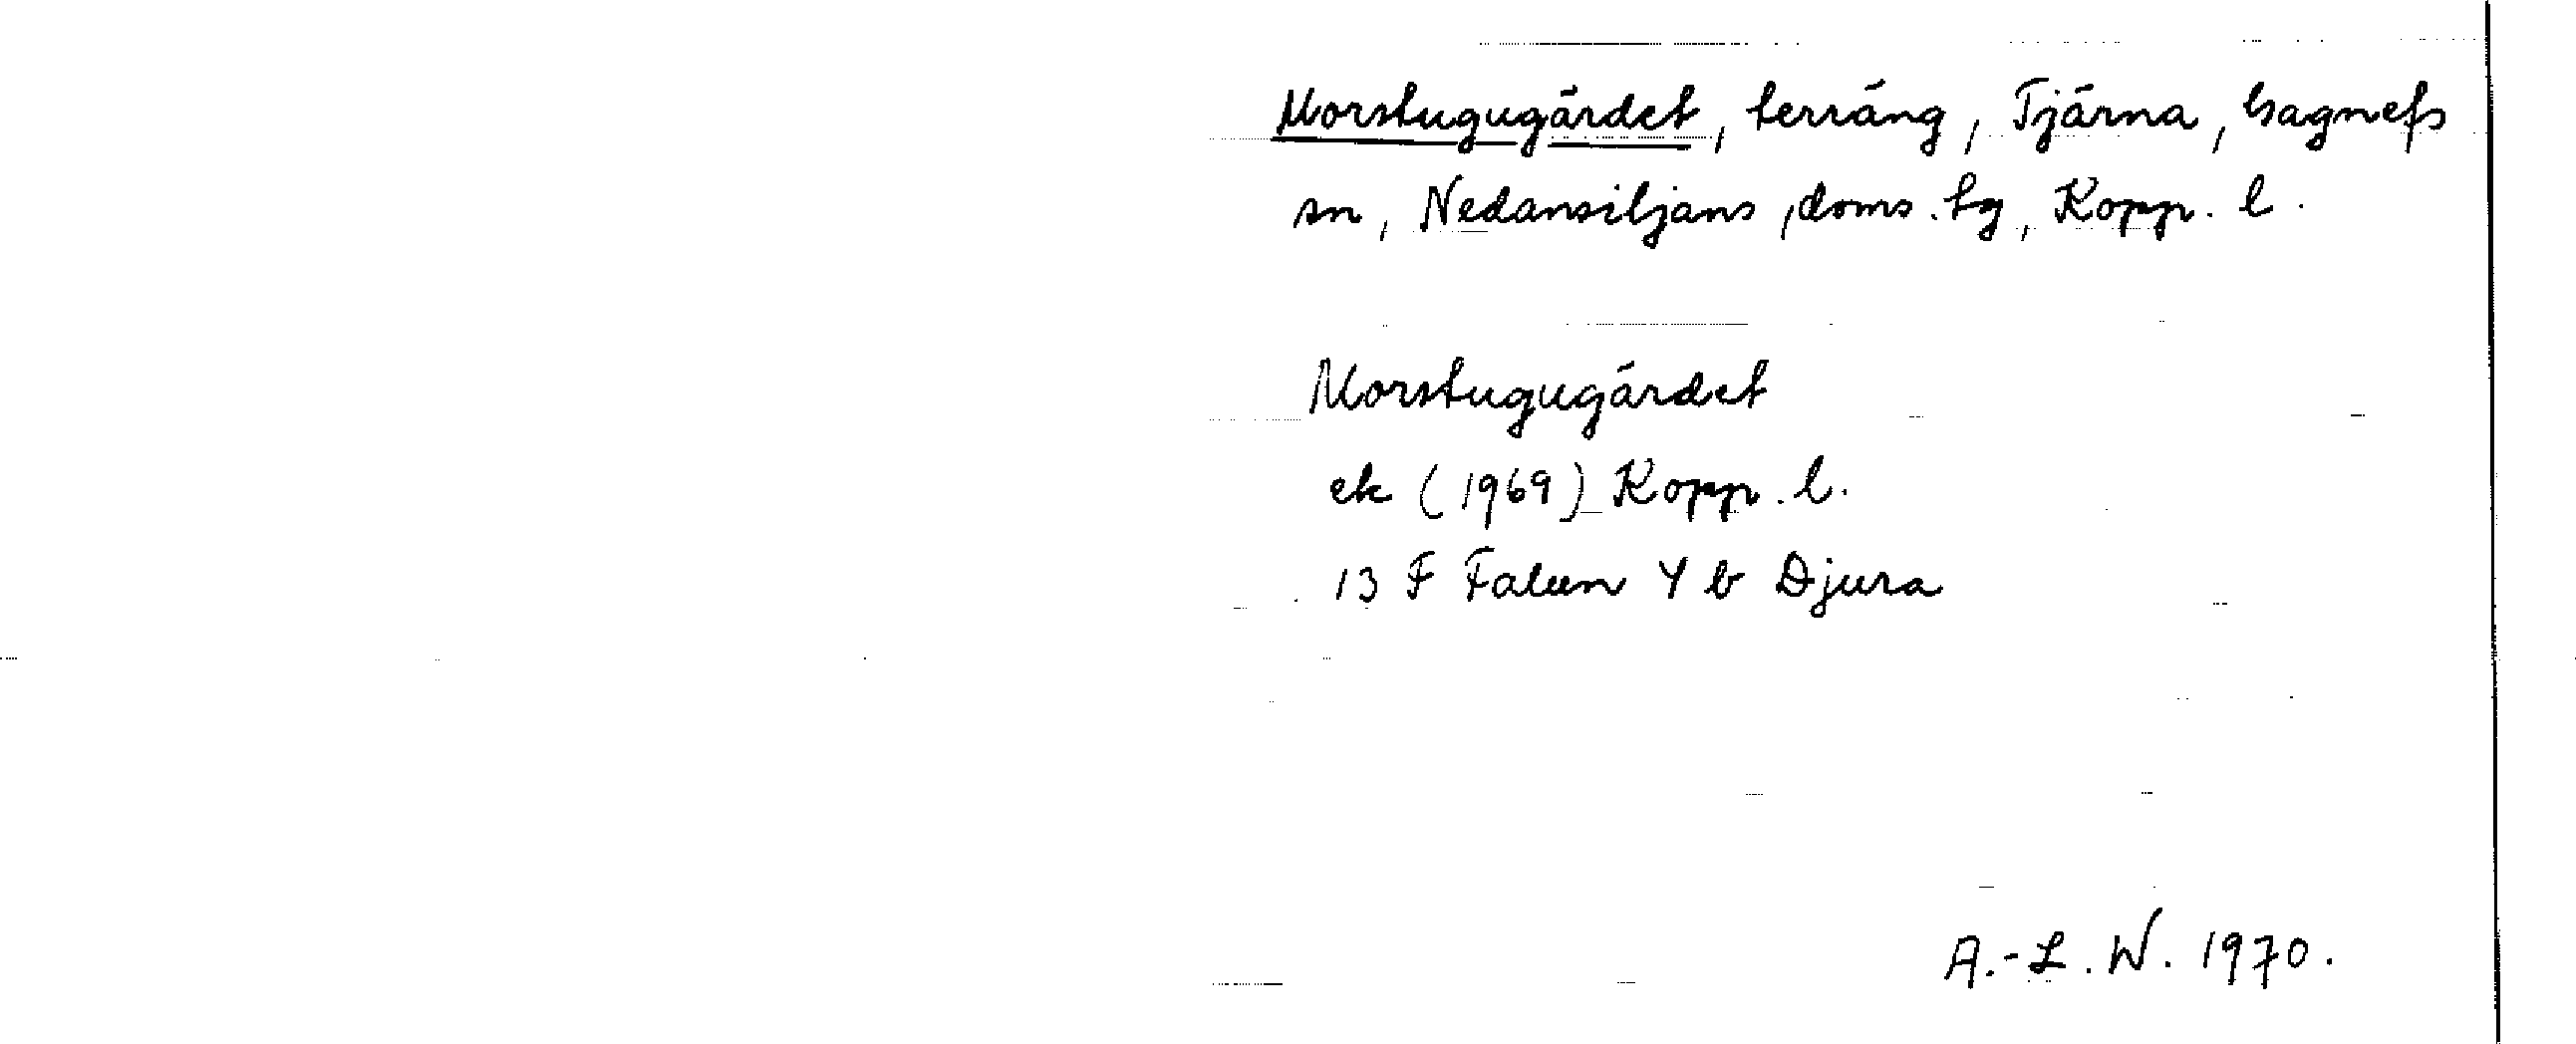 Morstugugärdet, terräng, Tjärna, Gagnefs
sn, Nedansiljans, doms. tg, Kopp. l.
Morstugugärdet
ek (1969) Kopp. l.
13 F Falun 4 b Djura
A.-L. W. 1970.